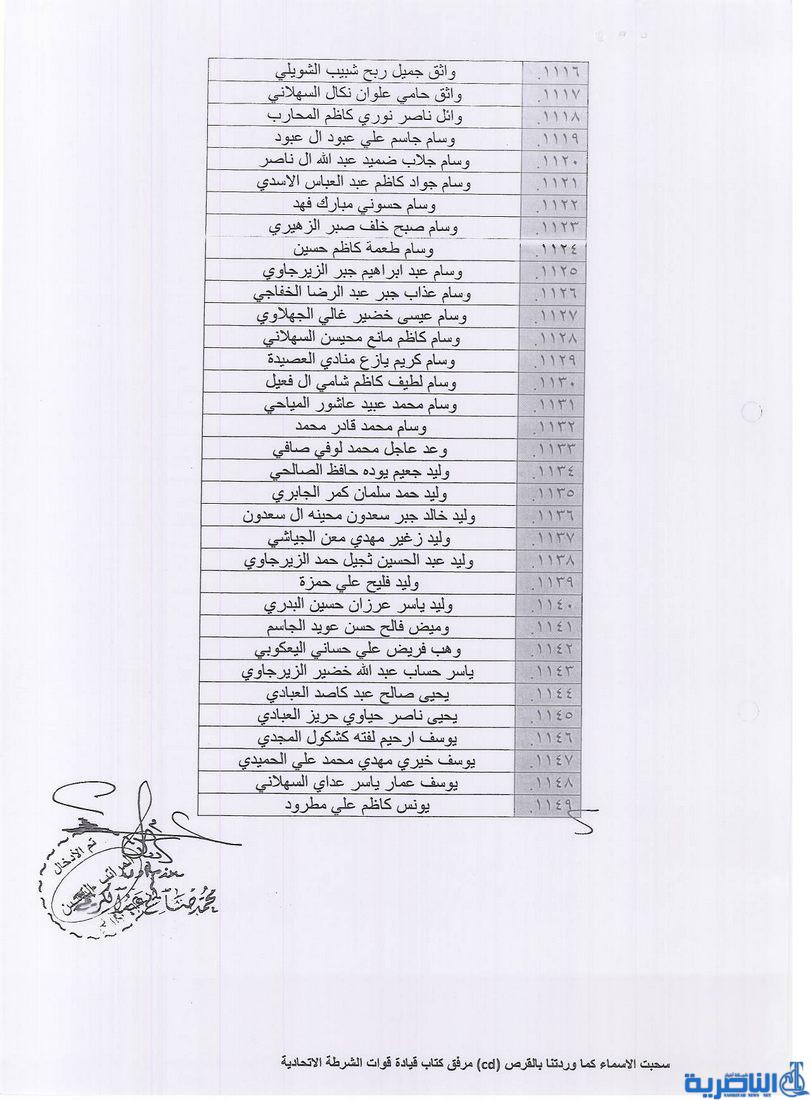 ١١١٦. واثق جميل ربح شبيب الشويلي
١١١٧. واثق حامي علوان نكال السهلاني
١١١٨. وائل ناصر نوري كاظم المحارب
١١١٩. وسام جاسم علي عبود ال عبود
١١٢٠. وسام جلاب ضميد عبد الله ال ناصر
١١٢١. وسام جواد كاظم عبد العباس الاسدي
١١٢٢. وسام حسوني مبارك فهد
١١٢٣. وسام صبح خلف صبر الزهيري
١١٢٤. وسام طعمة كاظم حسين
١١٢٥. وسام عبد ابراهيم جبر الزيرجاوي
١١٢٦. وسام عذاب جبر عبد الرضا الخفاجي
١١٢٧. وسام عيسى خضير غالي الجهلاوي
١١٢٨. وسام كاظم مانع محيسن السهلاني
١١٢٩. وسام كريم يازع منادي العصيدة
١١٣٠. وسام لطيف كاظم شامي ال فعيل
١١٣١. وسام محمد عبيد عاشور المياحي
١١٣٢. وسام محمد قادر محمد
١١٣٣. وعد عاجل محمد لوفي صافي
١١٣٤. وليد جعيم يوده حافظ الصالحي
١١٣٥. وليد حمد سلمان كمر الجابري
١١٣٦. وليد خالد جبر سعدون محينه ال سعدون
١١٣٧. وليد زغير مهدي معن الجياشي
١١٣٨. وليد عبد الحسين ثجيل حمد الزيرجاوي
١١٣٩. وليد فليح علي حمزة
١١٤٠. وليد ياسر عرزان حسين البدري
١١٤١. وميض فالح حسن عويد الجاسم
١١٤٢. وهب فريض علي حساني اليعكوبي
١١٤٣. ياسر حساب عبد الله خضير الزيرجاوي
١١٤٤. يحيى صالح عبد كاصد العبادي
١١٤٥. يحيى ناصر حياوي حريز العبادي
١١٤٦. يوسف ارحيم لفته كشكول المجدي
١١٤٧. يوسف خيري مهدي محمد علي الحميدي
١١٤٨. يوسف عمار ياسر عداي السهلاني
١١٤٩. يونس كاظم علي مطرود
تم الأدخال
محمد عبد الكريم
سحبت الاسماء كما وردتنا بالقرص (cd) مرفق كتاب قيادة قوات الشرطة الاتحادية
شبكة أخبار
الناصرية
NASIRIYAH NEWS NET